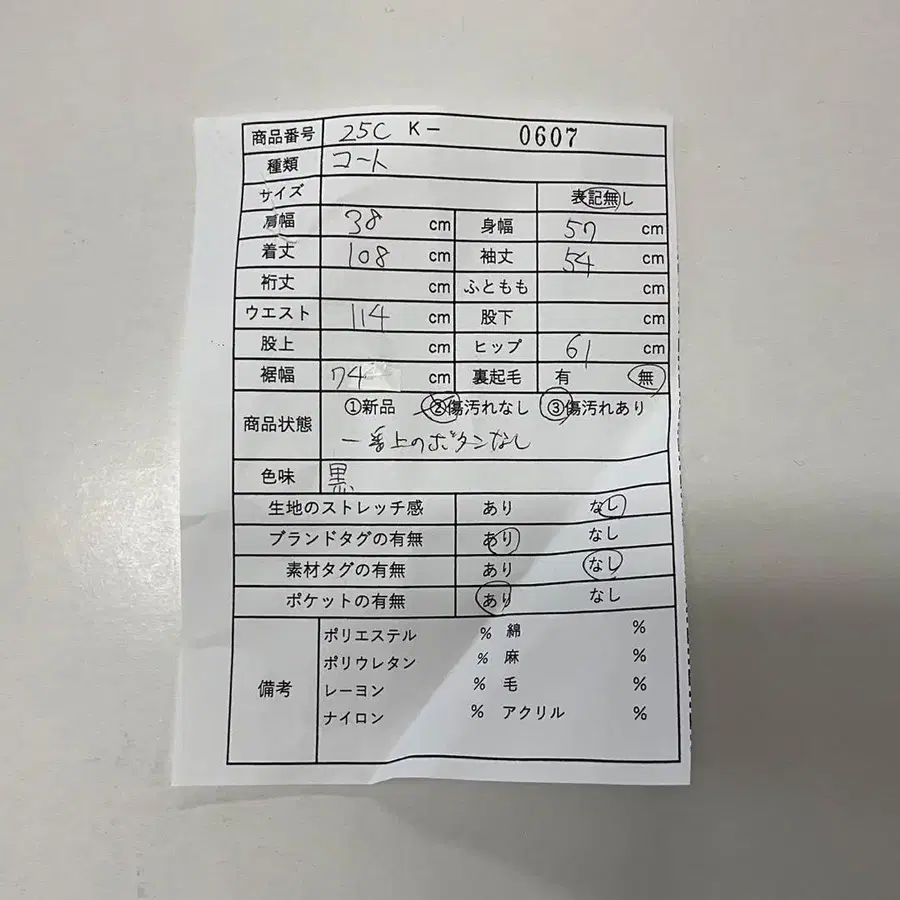 商品番号 25C K- 0607
種類 コート
サイズ 表記無し
肩幅 38 cm 身幅 57 cm
着丈 108 cm 袖丈 54 cm
裄丈 cm ふともも cm
ウエスト 114 cm 股下 cm
股上 cm ヒップ 61 cm
裾幅 74 cm 裏起毛 有 無
商品状態 ①新品 ②傷汚れなし ③傷汚れあり
一番上のボタンなし
色味 黒
生地のストレッチ感 あり なし
ブランドタグの有無 あり なし
素材タグの有無 あり なし
ポケットの有無 あり なし
備考
ポリエステル % 綿 %
ポリウレタン % 麻 %
レーヨン % 毛 %
ナイロン % アクリル %